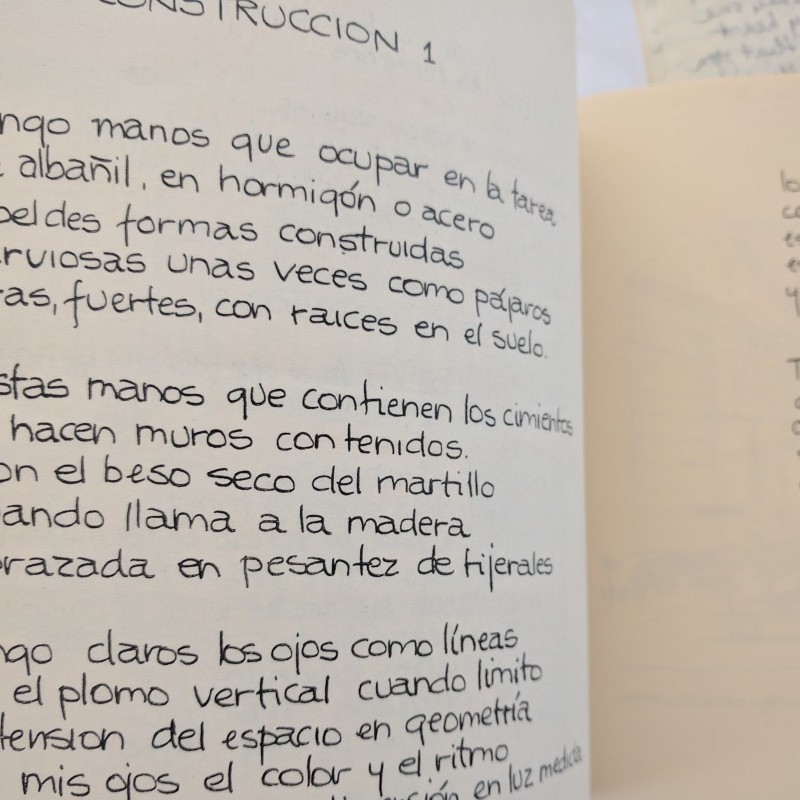 CONSTRUCCION 1
ngo manos que ocupar en la tarea
albañil, en hormigón o acero
beldes formas construidas
rviosas unas veces como pájaros
ras, fuertes, con raices en el suelo.
stas manos que contienen los cimientos
hacen muros contenidos.
on el beso seco del martillo
ando llama a la madera
razada en pesantez de tijerales
ngo claros los ojos como líneas
el plomo vertical cuando limito
tension del espacio en geometría
mis ojos el color y el ritmo
en luz medida